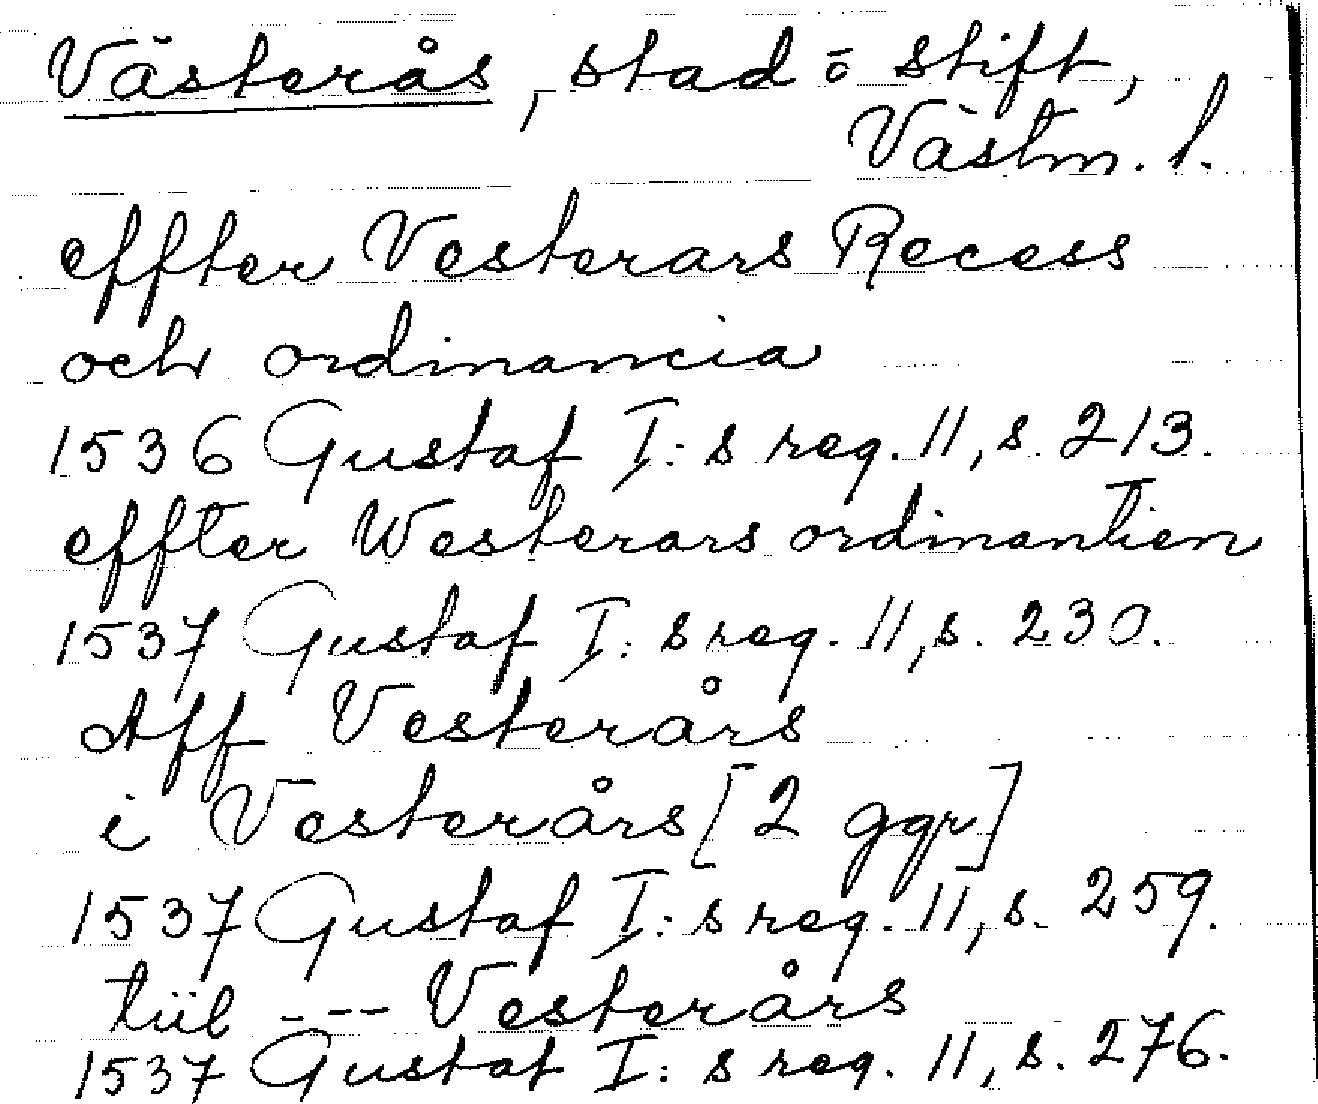 Västerås, stad o stift,
Västm. l.
effter Vesterars Recess
och ordinancia
1536 Gustaf I:s reg. 11, s. 213.
effter Westerars ordinantien
1537 Gustaf I:s reg. 11, s. 230.
Aff Vesterårs
i Vesterårs [2 ggr]
1537 Gustaf I:s reg. 11, s. 259.
tiil --- Vesterårs
1537 Gustaf I:s reg. 11, s. 276.